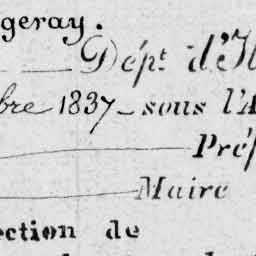 geray.
Dépt. d'Il
bre 1837 - sous l'A
Préf
Maire
ection de